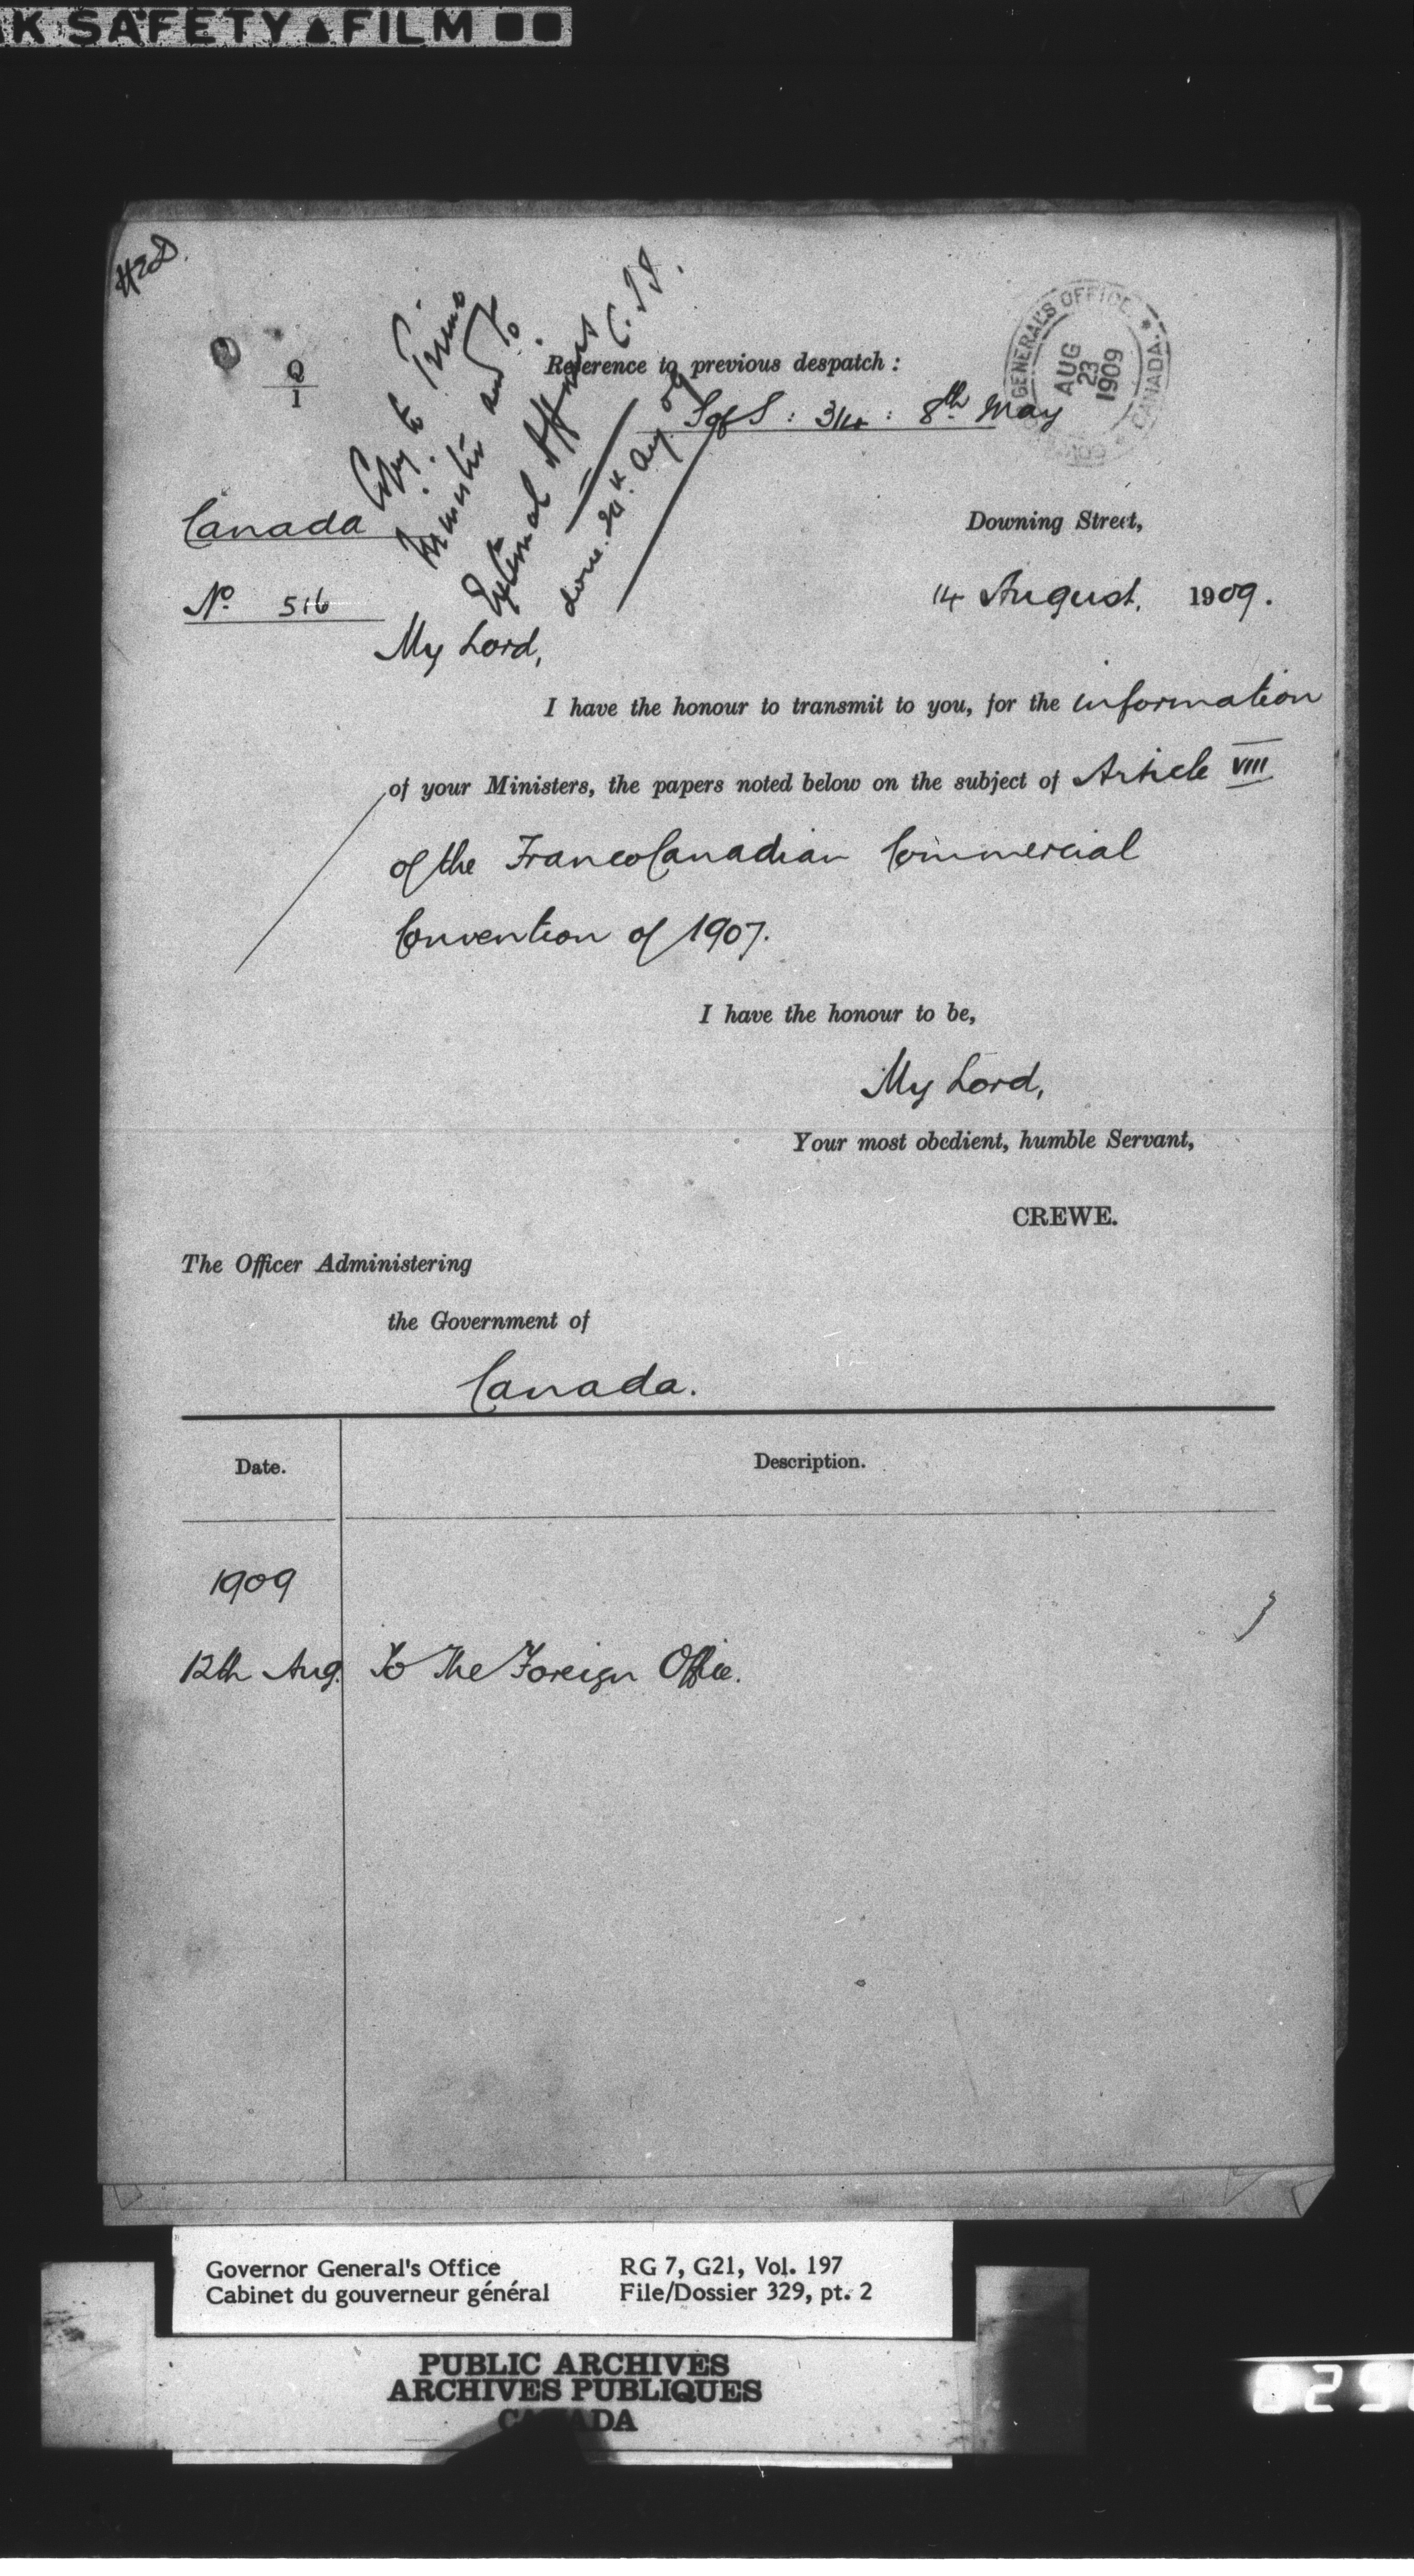 K SAFETY ▲ FILM ■■
Q
1
Copy to Prime
Minister and to
External Affairs
done. 24th Aug 09
Reference to previous despatch :
S of S : 314 : 8th May
GENERAL'S OFFICE
AUG
23
1909
CANADA
Canada
No. 516
Downing Street,
14 August, 1909.
My Lord,
I have the honour to transmit to you, for the information
of your Ministers, the papers noted below on the subject of Article VIII
of the Franco Canadian Commercial
Convention of 1907.
I have the honour to be,
My Lord,
Your most obedient, humble Servant,
CREWE.
The Officer Administering
the Government of
Canada.
Date.
Description.
1909
12th Aug. To The Foreign Office.
Governor General's Office RG 7, G21, Vol. 197
Cabinet du gouverneur général File/Dossier 329, pt. 2
PUBLIC ARCHIVES
ARCHIVES PUBLIQUES
CANADA